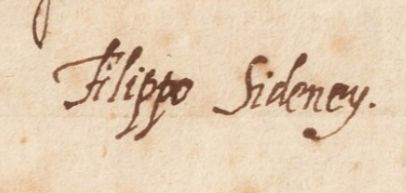 Filippo Sideney.